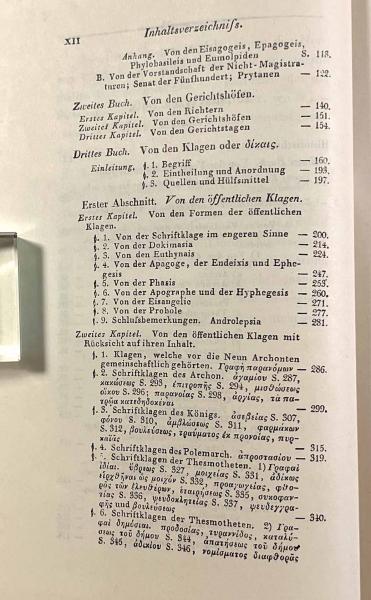 XII
Inhaltsverzeichniſs.
Anhang. Von den Eisagogeis, Epagogeis,
Phylobasileis und Eumolpiden S. 118.
B. Von der Vorstandschaft der Nicht-Magistra-
turen; Senat der Fünfhundert; Prytanen — 122.
Zweites Buch. Von den Gerichtshöfen.
Erstes Kapitel. Von den Richtern — 140.
Zweites Kapitel. Von den Gerichtshöfen — 151.
Drittes Kapitel. Von den Gerichtstagen — 154.
Drittes Buch. Von den Klagen oder δίκαις.
Einleitung. §. 1. Begriff — 160.
§. 2. Eintheilung und Anordnung — 193.
§. 3. Quellen und Hülfsmittel — 197.
Erster Abschnitt. Von den öffentlichen Klagen.
Erstes Kapitel. Von den Formen der öffentlichen
Klagen.
§. 1. Von der Schriftklage im engeren Sinne — 200.
§. 2. Von der Dokimasia — 214.
§. 3. Von den Euthynais — 224.
§. 4. Von der Apagoge, der Endeixis und Ephe-
gesis — 247.
§. 5. Von der Phasis — 253.
§. 6. Von der Apographe und der Hyphegesis — 260.
§. 7. Von der Eisangelie — 271.
§. 8. Von der Probole — 277.
§. 9. Schluſsbemerkungen. Androlepsia — 281.
Zweites Kapitel. Von den öffentlichen Klagen mit
Rücksicht auf ihren Inhalt.
§. 1. Klagen, welche vor die Neun Archonten
gemeinschaftlich gehörten. Γραφὴ παρανόμων — 286.
§. 2. Schriftklagen des Archon. ἀγαμίου S. 287,
κακώσεως S. 293, ἐπιτροπῆς S. 294, μισθώσεως
οἴκου S. 296; παρανοίας S. 298, ἀργίας, τὰ πα-
τρῷα κατεδηδοκέναι
§. 3. Schriftklagen des Königs. ἀσεβείας S. 307, — 299.
φόνου S. 310, ἀμβλώσεως S. 311, φαρμάκων
S. 312, βουλεύσεως, τραύματος ἐκ προνοίας, πυρ-
καϊᾶς
§. 4. Schriftklagen des Polemarch. ἀπροστασίου — 315.
§. 5. Schriftklagen der Thesmotheten. 1) Γραφαὶ — 319.
ἴδιαι. ὕβρεως S. 327, μοιχείας S. 331, ἀδίκως
εἱρχθῆναι ὡς μοιχόν S. 332, προαγωγείας, φθο-
ρᾶς τῶν ἐλευθέρων, ἑταιρήσεως S. 335, συκοφαν-
τίας S. 336, ψευδοκλητείας S. 337, ψευδεγγρα-
φῆς und βουλεύσεως
§. 6. Schriftklagen der Thesmotheten. 2) Γρα- — 340.
φαὶ δημόσιαι. προδοσίας, τυραννίδος, καταλύ-
σεως τοῦ δήμου S. 344, ἀπατήσεως τοῦ δήμου
S. 346, ἀδικίου S. 346, νομίσματος διαφθορᾶς